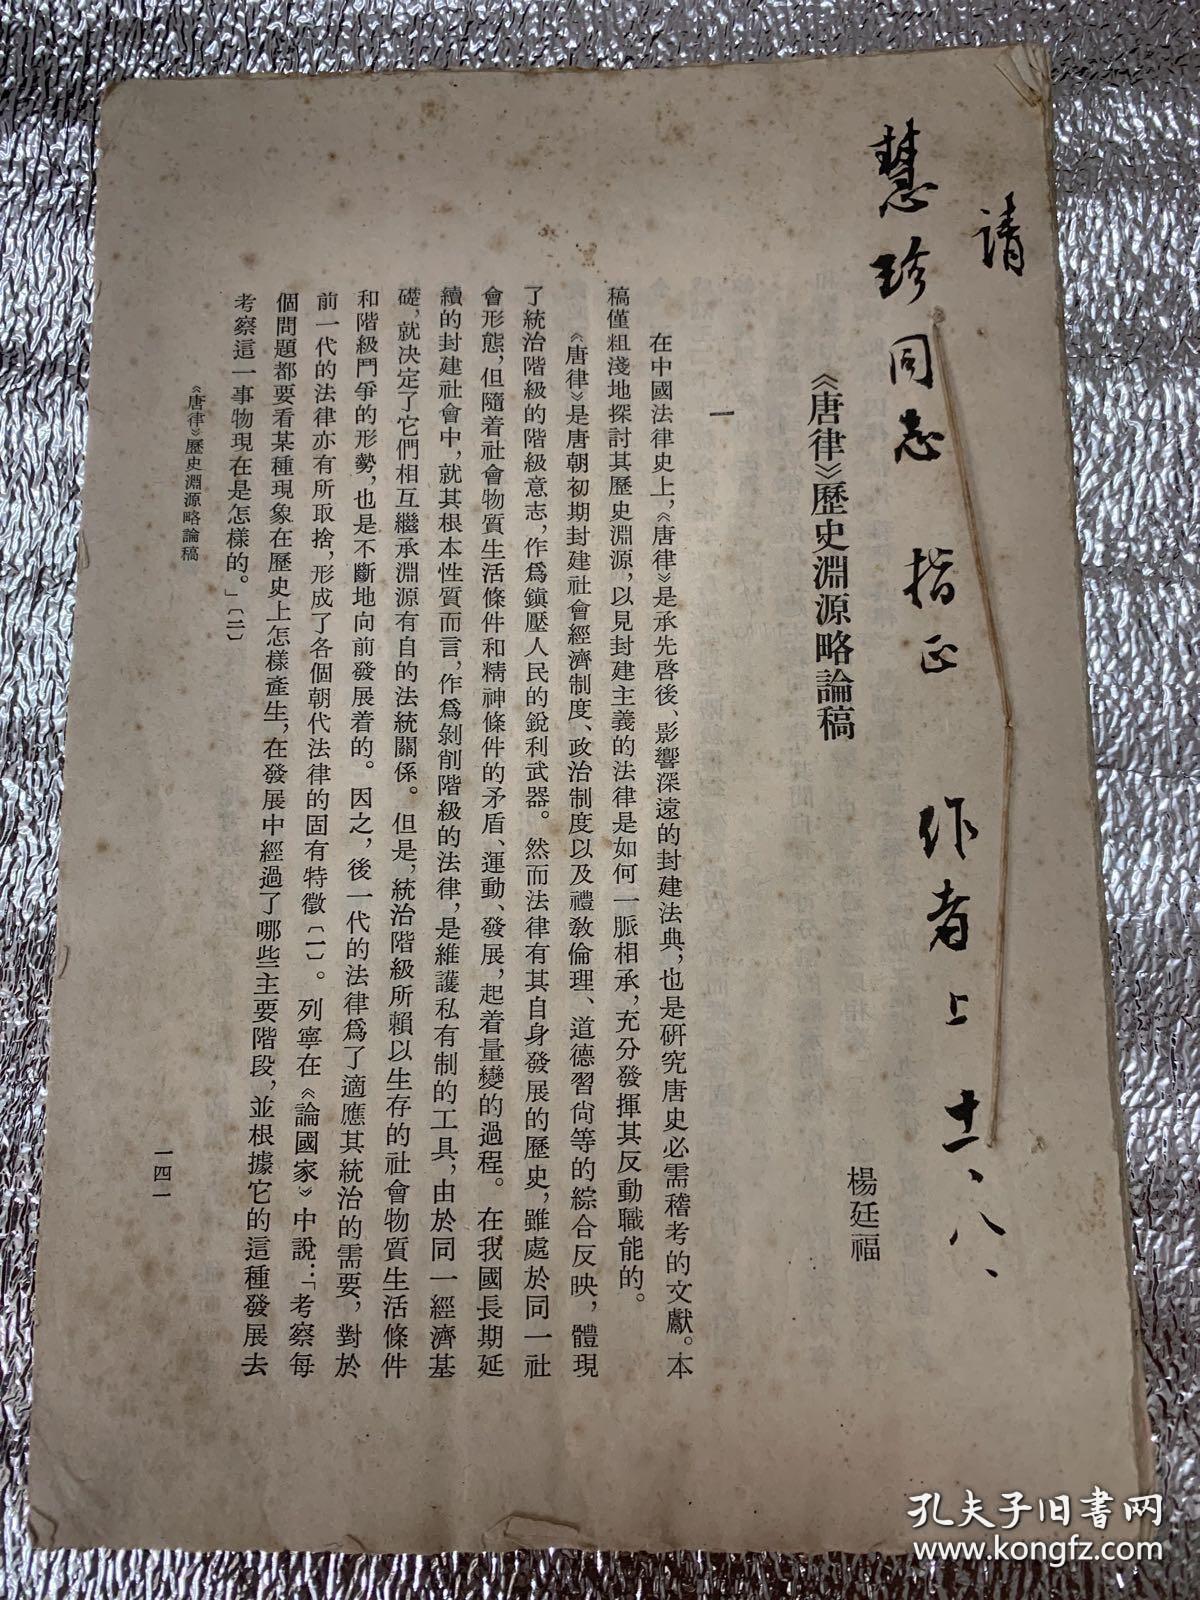 請
慧珍同志 指正 作者上 十一、八、
《唐律》歷史淵源略論稿
楊廷福
在中國法律史上，《唐律》是承先啓後、影響深遠的封建法典，也是研究唐史必需稽考的文獻。本
稿僅粗淺地探討其歷史淵源，以見封建主義的法律是如何一脈相承，充分發揮其反動職能的。
一
《唐律》是唐朝初期封建社會經濟制度、政治制度以及禮敎倫理、道德習尙等的綜合反映，體現
了統治階級的階級意志，作爲鎭壓人民的銳利武器。然而法律有其自身發展的歷史，雖處於同一社
會形態，但隨着社會物質生活條件和精神條件的矛盾、運動、發展，起着量變的過程。在我國長期延
續的封建社會中，就其根本性質而言，作爲剝削階級的法律，是維護私有制的工具，由於同一經濟基
礎，就决定了它們相互繼承淵源有自的法統關係。但是，統治階級所賴以生存的社會物質生活條件
和階級鬥爭的形勢，也是不斷地向前發展着的。因之，後一代的法律爲了適應其統治的需要，對於
前一代的法律亦有所取捨，形成了各個朝代法律的固有特徵〔一〕。列寧在《論國家》中說：「考察每
個問題都要看某種現象在歷史上怎樣產生，在發展中經過了哪些主要階段，並根據它的這種發展去
考察這一事物現在是怎樣的。」〔二〕
《唐律》歷史淵源略論稿
一四一
孔夫子旧书网
www.kongfz.com